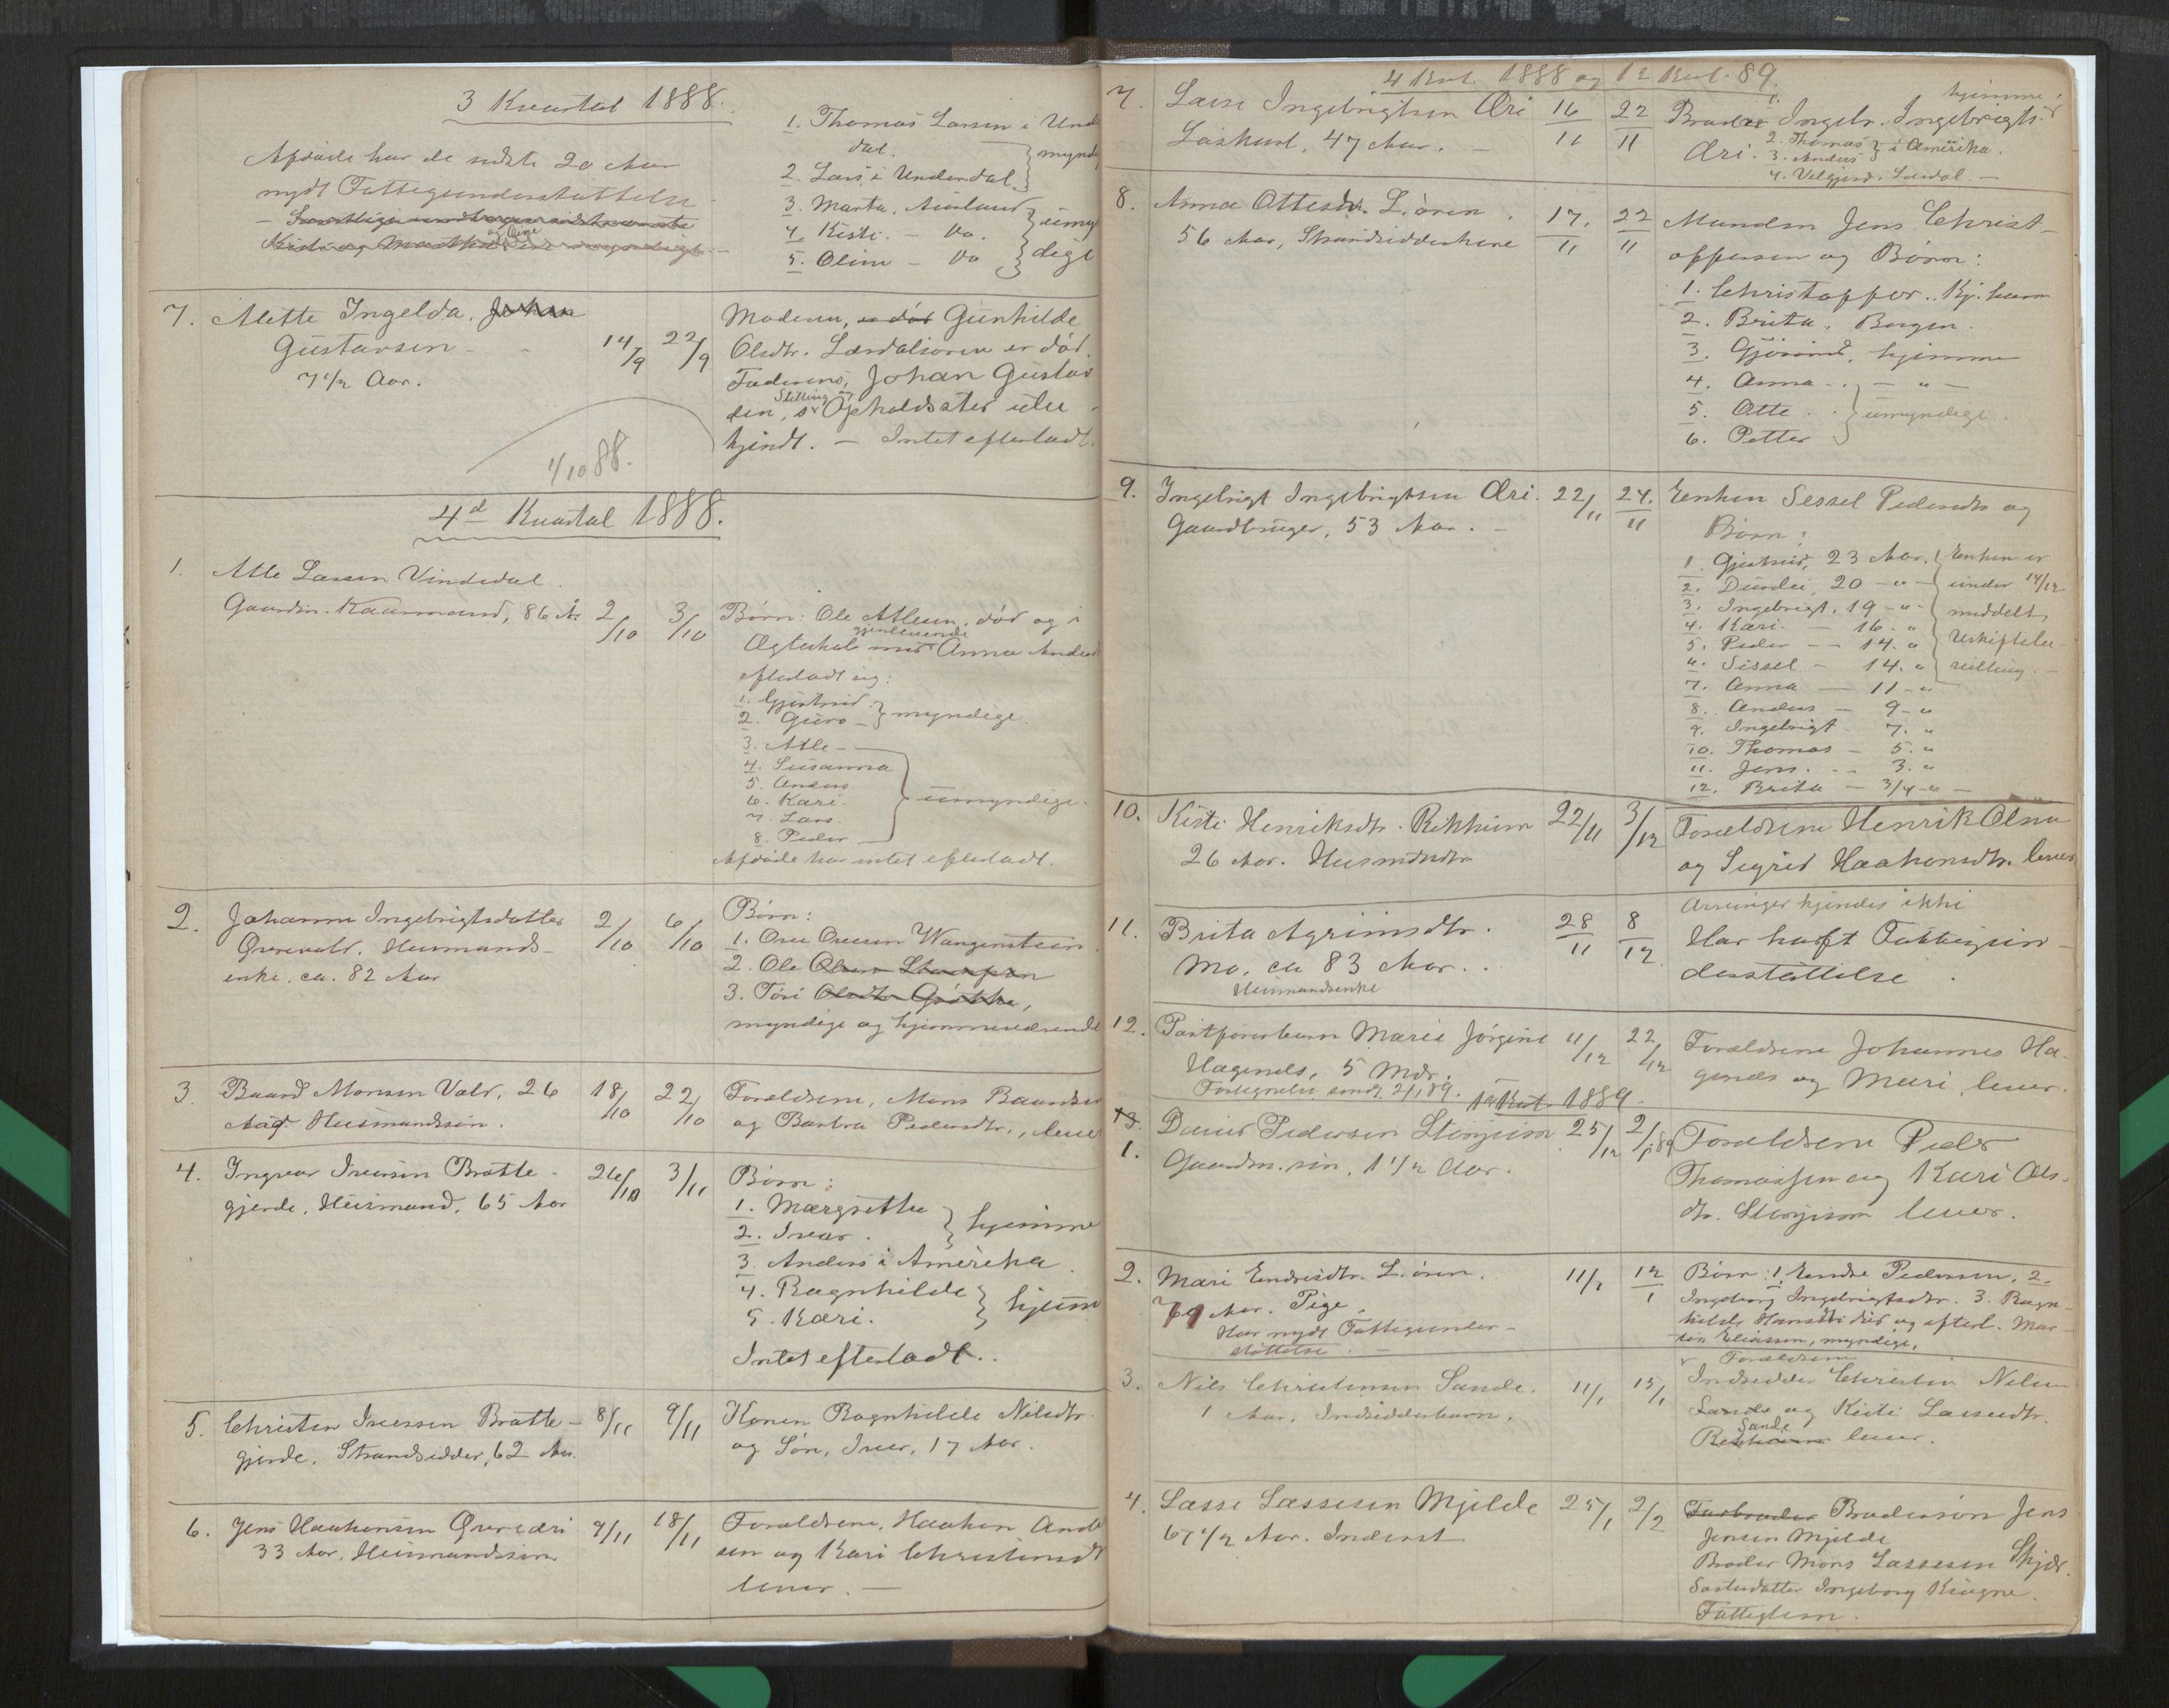 3 Kvartal 1888.
Afdøde har de sidste 20 Aar
nydt Fattigunderstøttelse
1. Thomas Larsen i Und
dal.
2. Lars i Underdal
3. Marta, Aurland
4. Kisti - Do.
5. Oline - Do
7. Alette Ingelda. Johan
Gustavsen
7 1/2 Aar.
14/9 22/9
Moderen, er død Gunhilde
Olsdtr. Lærdalsøren er død.
Faderens, Johan Gustav
Stilling og
sen, s Opholdssted ube
kjendt. — Intet efterladt.
4/10 88.
4d Kvartal 1888.
1. Atle Larsen Vindedal.
Gaardm. Kaarmand, 86 År
2/10 3/10
Børn: Ole Atlesen, død og i
gjenlevende
Ægteskab med Anna Anders
efterladt sig:
1. Gjertrud
2. Guro } myndige.
3. Atle
4. Susanna
5. Anders
6. Kari.
7. Lars.
8. Peder
} umyndige.
Afdøde har intet efterladt.
2. Johanna Ingebrigtsdatter
Øvrevold. Husmands-
enke. ca. 82 Aar
2/10 6/10
Børn:
1. Ole Wangenstein
2. Ole Olsen
3. Turi Olsdtr
myndige og hjemmeværende
3. Baard Monsen Vold, 26
Aag. Husmandssøn.
18/10 22/10
Forældrene, Mons Baardsen
og Barbra Pedersdtr., lever
4. Ingvar Iversen Bratte-
gjerde, Husmand, 65 Aar
26/10 3/11
Børn:
1. Margrethe
2. Ivar. } hjemme
3. Anders i Amerika.
4. Ragnhilde
5. Kari. } hjem
Intet efterladt.
5. Christen Iversen Bratte-
gjerde. Strandsidder, 62 Aar.
8/11 9/11
Konen Ragnhilde Nilsdtr.
og Søn, Iver, 17 Aar.
6. Jens Haakonsen Øvreæri
33 Aar, Husmandssøn
9/11 18/11
Forældrene, Haaken Ande
sen og Kari Christensdt
lever. —
4 Kvt. 1888 og 1ste Kvt. 89.
7. Lasse Ingebrigtsen Æri
Løskarl, 47 Aar. —
16/11 22/11
hjemme
Brødre 1. Ingebr. Ingebrigts.
Æri. 2. Thomas
3. Anders } i Amerika.
4. Velgjerd. Lærdal. —
8. Anna Ottesdtr. L.øren.
56 Aar, Strandsidderkone
17/11 22/11
Manden Jens Christ-
offersen og Børn:
1. Christoffer. Kj.havn
2. Brita, Bergen.
3. Gjørond, hjemme
4. Anna - - " -
5. Otte
6. Petter
} umyndige.
9. Ingebrigt Ingebrigtsen Æri.
Gaardbruger, 53 Aar. —
22/11 24/11
Enken Sessel Pedersdtr og
Børn:
1. Gjertrud, 23 Aar.
2. Durdei, 20 - " -
3. Ingebrigt, 19 - " -
4. Kari — 16 - "
5. Peder — 14. "
6. Sissel — 14. "
7. Anna — 11 - "
8. Anders — 9 - "
9. Ingebrigt - 7. "
10. Thomas — 5. "
11. Jens. — 3. "
12. Brita — 3/4 - " —
Enken er
under 14/12
meddelt
Uskiftebe-
villing. —
10. Kisti Henriksdtr. Rikheim
26 Aar. Husmdsdtr
22/11 3/12
Forældrene Henrik Olsen
og Sigrid Haakonsdtr. lever
11. Brita Agrimsdtr.
Mo, ca 83 Aar.
Husmandsenke
28/11 8/12
Arvinger kjendes ikke
Har havft Fattigun-
derstøttelse.
12. Postførerbarn Marie Jørgine
Hagenæs, 5 Mdr.
Fortegnelse sendt 2/1 89.
11/12 22/12
Forældrene Johannes Ha-
genæs og Mari, lever.
1ste Kvt. 1889.
13.
1. Daniel Pedersen Stenjum
Gaardm.søn, 1 1/2 Aar.
25/12 2/1 89
Forældrene Peder
Thomassen og Kari Ols-
dtr. Stenjum lever.
2. Mari Endresdtr. L.øren.
79 Aar. Pige.
Har nydt Fattigunder-
støttelse.
11/1 12/1
Børn: 1. Endre Pedersen, 2.
Ingeborg Ingebrigtsdtr. 3. Ragn-
hilde Hansdtr. død og efterl. Mar-
tin Eliassen, myndige.
3. Nils Christensen Sande.
1 Aar, Indsidderbarn.
11/1 15/1
Forældrene
Indsidder Christen Nilsen
Sande og Kisti Larsdtr.
Sande
lever.
4. Lasse Lassesen Mjelde
67 1/2 Aar. Inderst
25/1 2/2
Farbroder Brodersøn Jens
Jensen Mjelde
Broder Mons Lassesen Skjær.
Søsterdatter Ingeborg Kuugne.
Fattiglem.